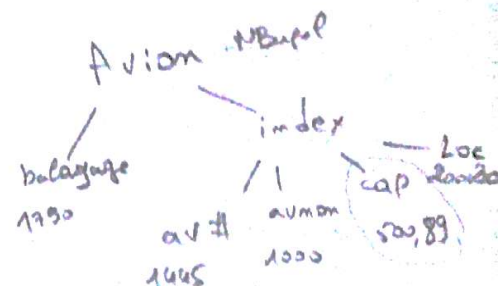 Avion
index
balayage
1790
av #
1445
avmon
1000
cap
500,89
Loc